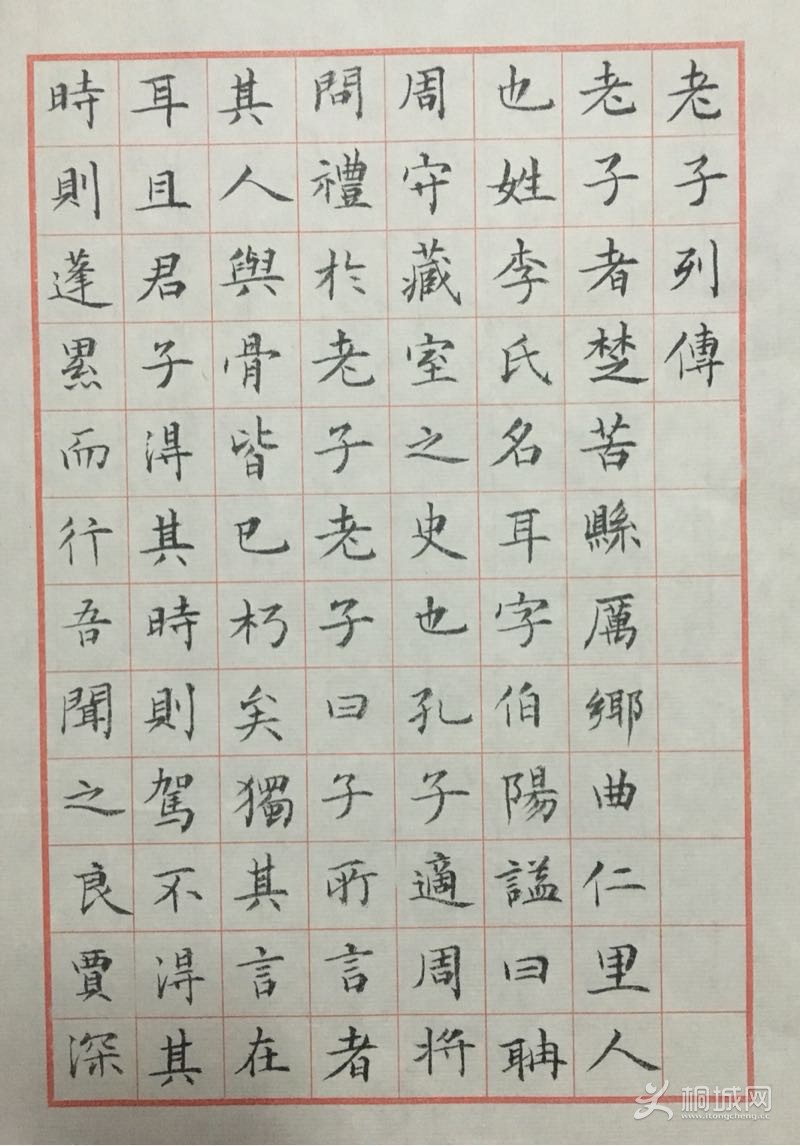 老子列傳
老子者楚苦縣厲鄉曲仁里人
也姓李氏名耳字伯陽謚曰聃
周守藏室之史也孔子適周將
問禮於老子老子曰子所言者
其人與骨皆已朽矣獨其言在
耳且君子得其時則駕不得其
時則蓬累而行吾聞之良賈深
桐城网
www.itongcheng.cc